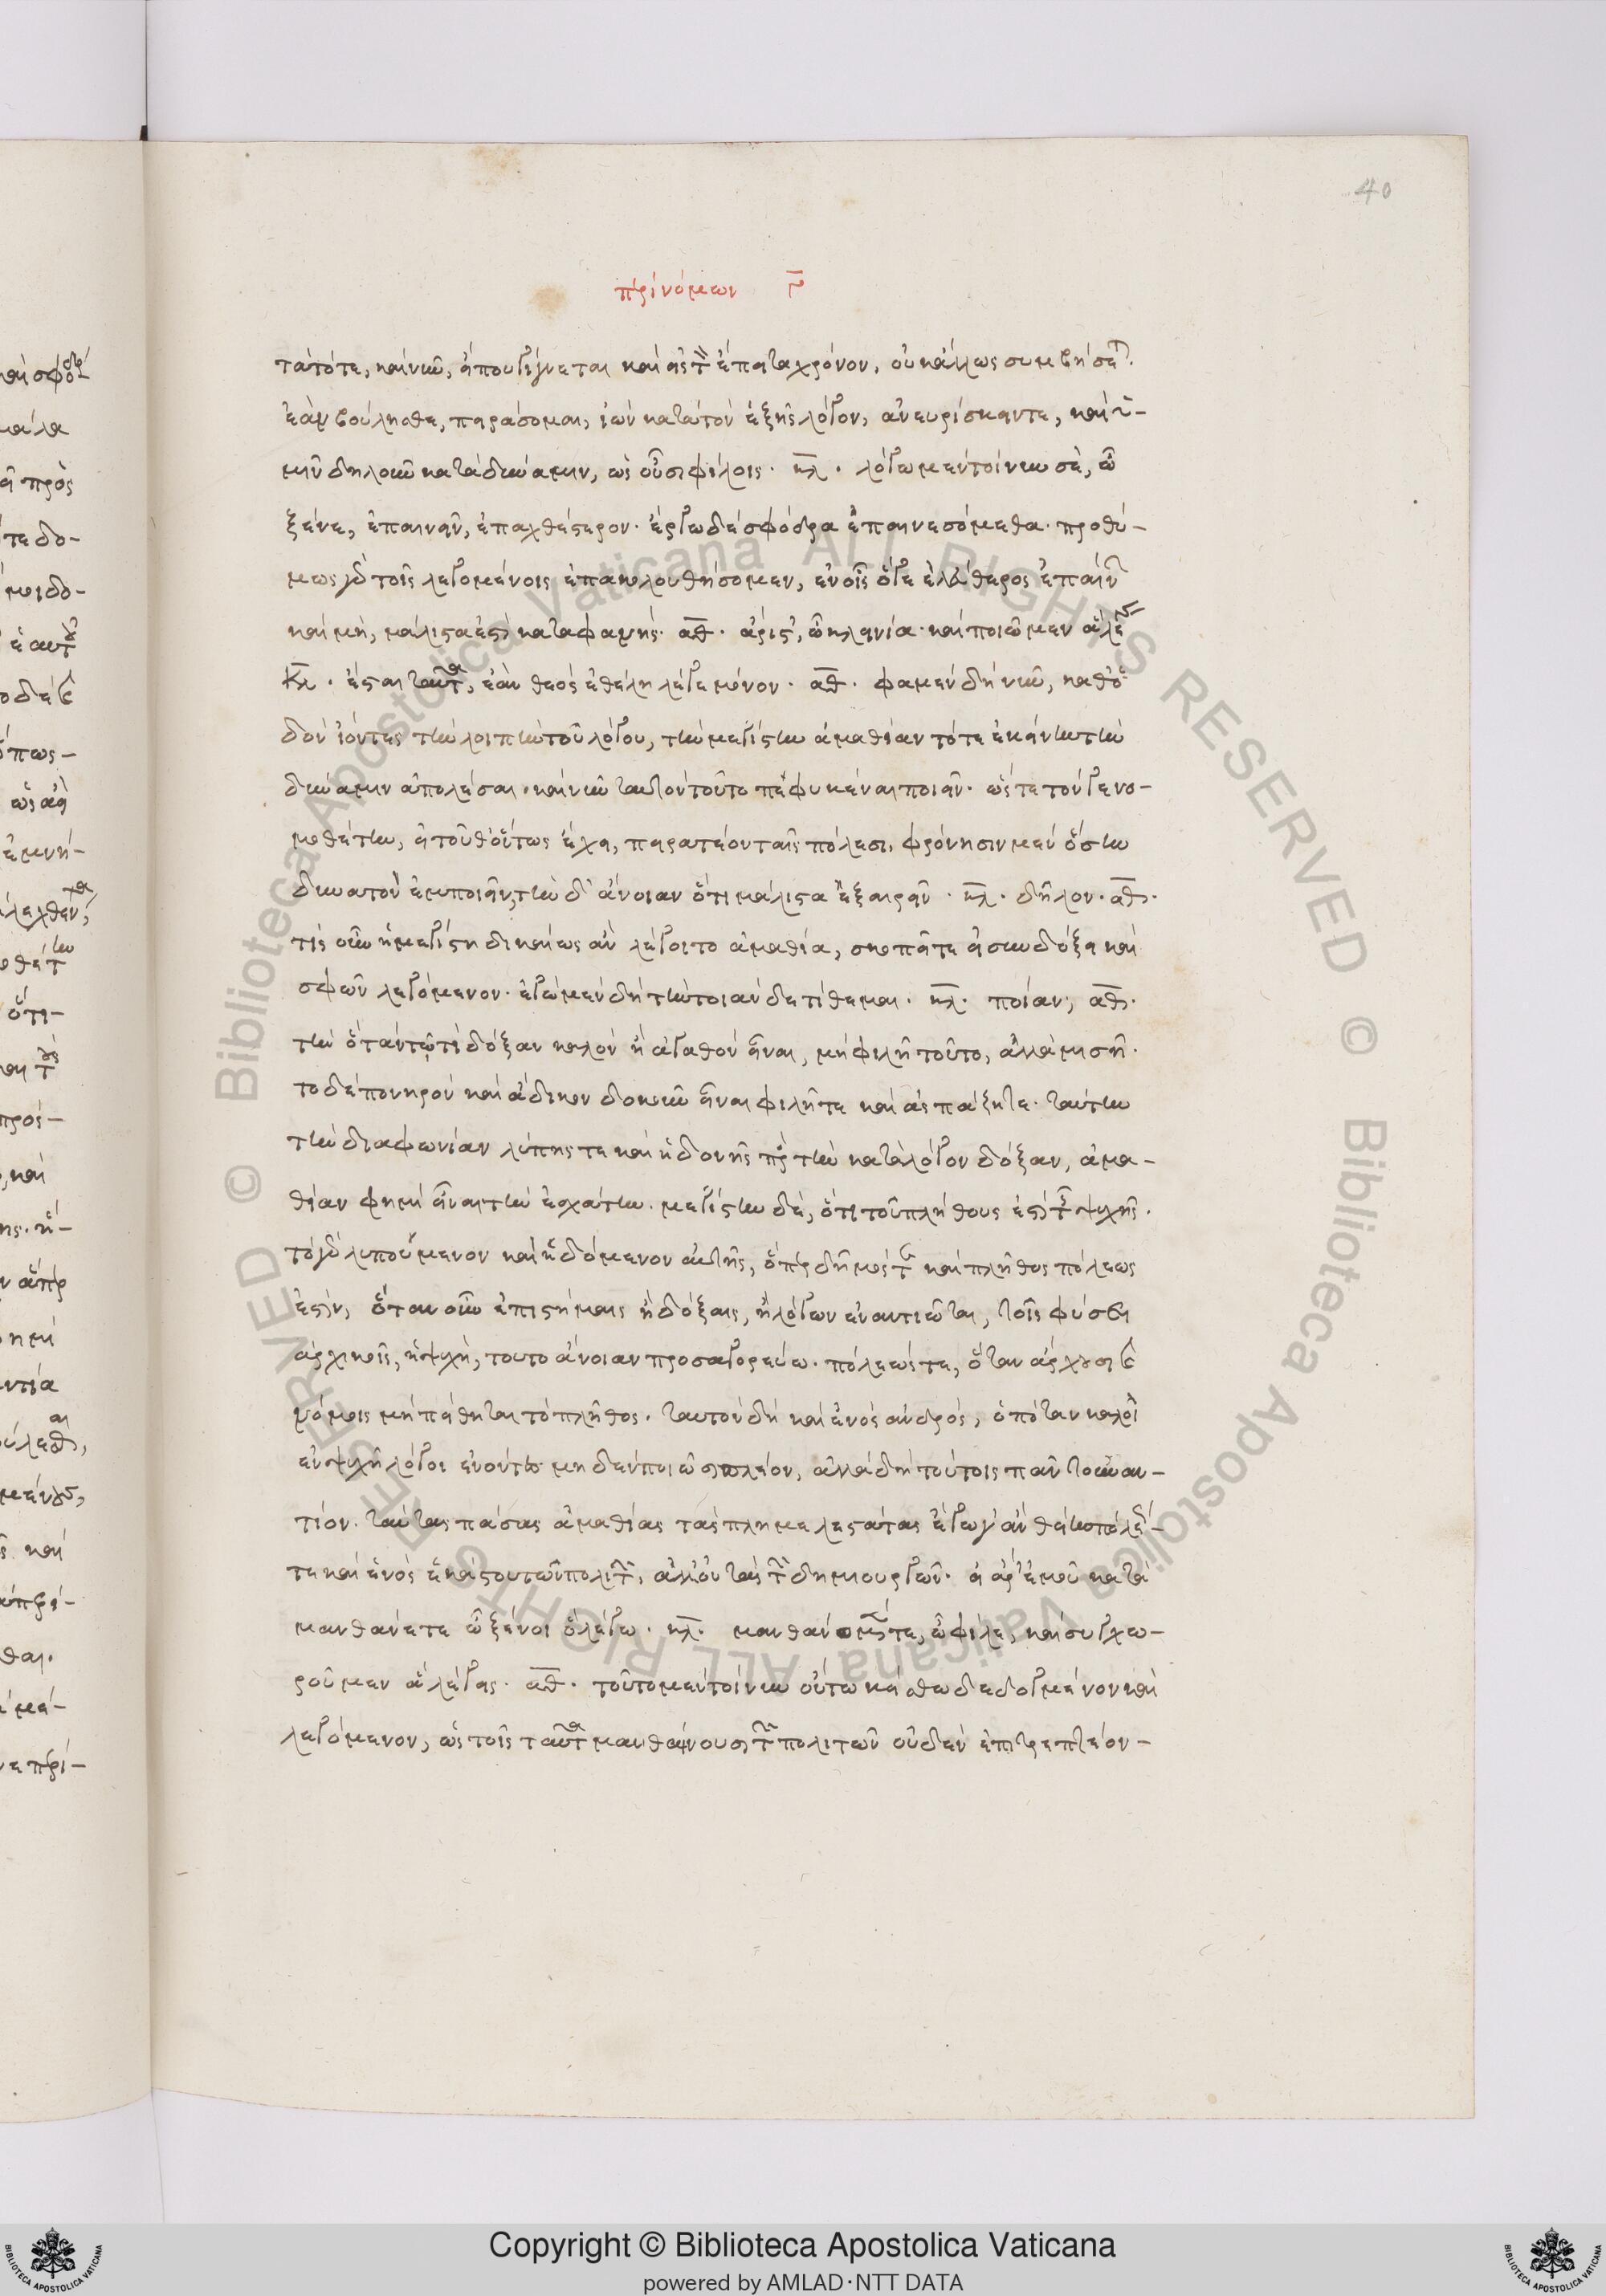 40
περὶ νόμων γ
τὰ τότε, καὶ νῦν, εἴ που γίγνεται καὶ εἰς τὸν ἔπειτα χρόνον, οὐκ ἄλλως συμβήσεται.
ἐὰν βούλησθε, πειράσομαι, ἰὼν κατὰ τὸν ἑξῆς λόγον, ἀνευρίσκειν τε, καὶ ὑ-
μῖν δηλοῦν κατὰ δύναμιν, ὡς οὖσι φίλοις. κλ. λόγῳ μὲν τοίνυν σὲ, ὦ
ξένε, ἐπαινεῖν, ἐπαχθέστερον. ἔργῳ δὲ σφόδρα ἐπαινεσόμεθα. προθύ-
μως γὰρ τοῖς λεγομένοις ἐπακολουθήσομεν, ἐν οἷς ὅγε ἐλεύθερος ἐπαινέτης
καὶ μὴ, μάλιστα ἐστὶ καταφανής. αθ. ἄριστ', ὦ κλεινία. καὶ ποιῶμεν ἃ λέγεις
Κλ. ἔσται ταῦτα, ἐὰν θεὸς ἐθέλῃ λέγε μόνον. αθ. φαμὲν δὴ νῦν, καθ' ὁ-
δὸν ἰόντες τὴν λοιπὴν τοῦ λόγου, τὴν μεγίστην ἀμαθίαν τότε ἐκείνην τὴν
δύναμιν ἀπολέσαι. καὶ νῦν ταυτὸν τοῦτο πεφυκέναι ποιεῖν. ὥστε τόν γε νο-
μοθέτην, εἰ τοῦθ' οὕτως ἔχει, πειρατέον ταῖς πόλεσι, φρόνησιν μὲν ὅσην
δυνατὸν ἐμποιεῖν, τὴν δ' ἄνοιαν ὅτι μάλιστα ἐξαιρεῖν. κλ. δῆλον. αθ.
τίς οὖν ἡ μεγίστη δικαίως ἂν λέγοιτο ἀμαθία, σκοπεῖτε εἰ συνδόξει καὶ
σφῶν λεγόμενον. ἐγὼ μὲν δὴ τὴν τοιάνδε τίθεμαι. κλ. ποίαν; αθ.
τὴν ὅταν τῷ τὶ δόξαν καλὸν ἢ ἀγαθὸν εἶναι, μὴ φιλῇ τοῦτο, ἀλλὰ μισῇ.
τὸ δὲ πονηρὸν καὶ ἄδικον δοκοῦν εἶναι φιλῇ τε καὶ ἀσπάζηται. ταύτην
τὴν διαφωνίαν λύπης τε καὶ ἡδονῆς πρὸς τὴν κατὰ λόγον δόξαν, ἀμα-
θίαν φημὶ εἶναι τὴν ἐσχάτην. μεγίστην δὲ, ὅτι τοῦ πλήθους ἐστὶ τῆς ψυχῆς.
τὸ γὰρ λυπούμενον καὶ ἡδόμενον αὐτῆς, ὅπερ δῆμός τε καὶ πλῆθος πόλεως
ἐστὶν, ὅταν οὖν ἐπιστήμαις ἢ δόξαις, ἢ λόγῳ ἐναντιῶται, τοῖς φύσει
ἀρχικοῖς, ἡ ψυχὴ, τοῦτο ἄνοιαν προσαγορεύω. πόλεώς τε, ὅταν ἄρχουσι καὶ
νόμοις μὴ πείθηται τὸ πλῆθος. ταυτὸν δὴ καὶ ἑνὸς ἀνδρὸς, ὁπόταν καλοὶ
ἐν ψυχῇ λόγοι ἐνόντες μηδὲν ποιῶσι πλέον, ἀλλὰ δὴ τούτοις πᾶν τοὐναν-
τίον. ταύτας πάσας ἀμαθίας τὰς πλημμελεστάτας ἔγωγ' ἂν θείην πόλεώς
τε καὶ ἑνὸς ἑκάστου τῶν πολιτῶν, ἀλλ' οὐ τὰς τῶν δημιουργῶν. εἰ ἄρ' ἐμοῦ κατα
μανθάνετε ὦ ξένοι ὃ λέγω. κλ. μανθάνομέν τε, ὦ φίλε, καὶ συγχω-
ροῦμεν ἃ λέγεις. αθ. τοῦτο μὲν τοίνυν οὕτω κείσθω δεδογμένον καὶ
λεγόμενον, ὡς τοῖς ταῦτα μανθάνουσι τῶν πολιτῶν οὐδὲν ἐπιτρεπτέον-
Copyright © Biblioteca Apostolica Vaticana
powered by AMLAD·NTT DATA